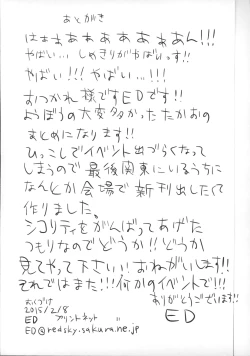 あとがき
はぁぁぁぁぁぁぁぁん!!!
やばい… しめきりがやばいっす!!
やばい!!! やばい…!!!
おつかれ様ですEDです!!
ようぼうの大変多かったたかおの
まとめになります!!
ひっこしでイベント出づらくなって
しまうので最後関東にいるうちに
なんとか会場で新刊出したくて
作りました。
シコリティをがんばってあげた
つもりなのでどうか!!どうか
見てやって下さい!!おねがいします!!
それではまた!!!何かのイベントで!!!
ありがとうございます!!
おくづけ
2015/2/8
ED プリントネット
ED@redsky.sakura.ne.jp
ED